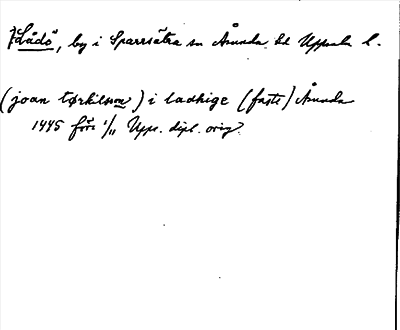 ? "Lådö", by i Sparrsätra sn Åsunda hd Uppsala l.
(joan tørkilsson) i ladhige (faste) Åsunda
1445 före 1/11 Upps. dipl. orig.